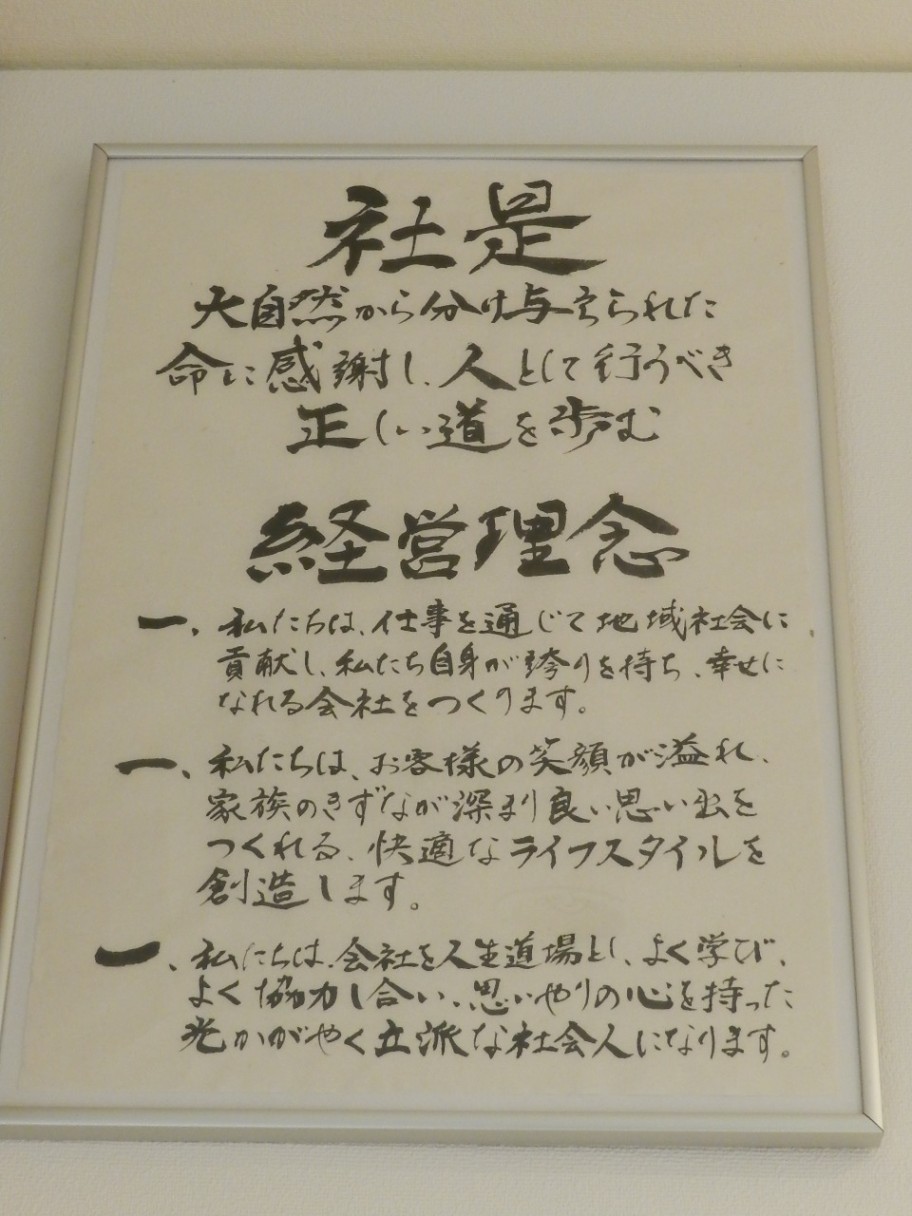 社是
大自然から分け与えられた
命に感謝し、人として行うべき
正しい道を歩む
経営理念
一、私たちは、仕事を通じて地域社会に
貢献し、私たち自身が誇りを持ち、幸せに
なれる会社をつくります。
一、私たちは、お客様の笑顔が溢れ、
家族のきずなが深まり良い思い出を
つくれる、快適なライフスタイルを
創造します。
一、私たちは、会社を人生道場とし、よく学び、
よく協力し合い、思いやりの心を持った
光かがやく立派な社会人になります。